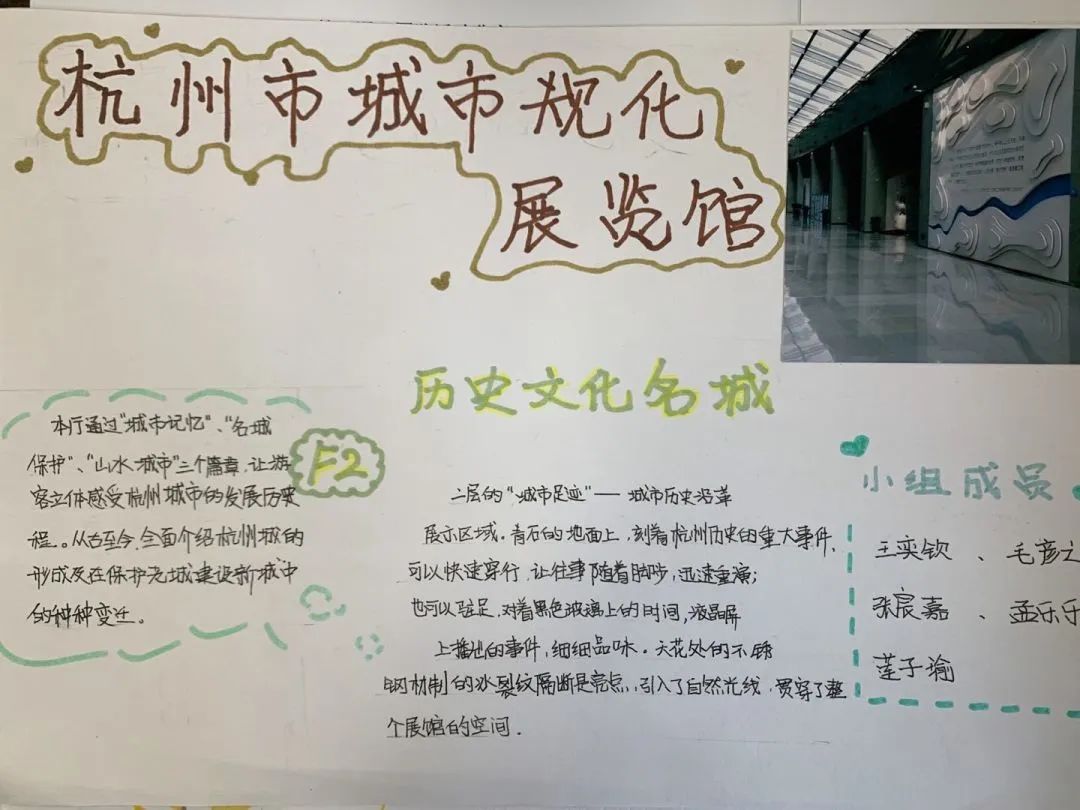 杭州市城市规化
展览馆
历史文化名城
本厅通过“城市记忆”、“名城
保护”、“山水城市”三个篇章，让游
客立体感受杭州城市的发展历史
程。从古至今，全面介绍杭州城的
形成及在保护老城建设新城中
的种种变迁。
F2
二层的“城市足迹”——城市历史沿革
展示区域。青石的地面上，刻着杭州历史的重大事件，
可以快速穿行，让往事随着脚步，迅速重演；
也可以驻足，对着黑色玻璃上的时间，液晶屏
上播出的事件，细细品味。天花处的不锈
钢材制的冰裂纹隔断是亮点，引入了自然光线，贯穿了整
个展馆的空间．
小组成员
王奕钦、毛彦之
张宸嘉、孟乐乐
莲子瑜